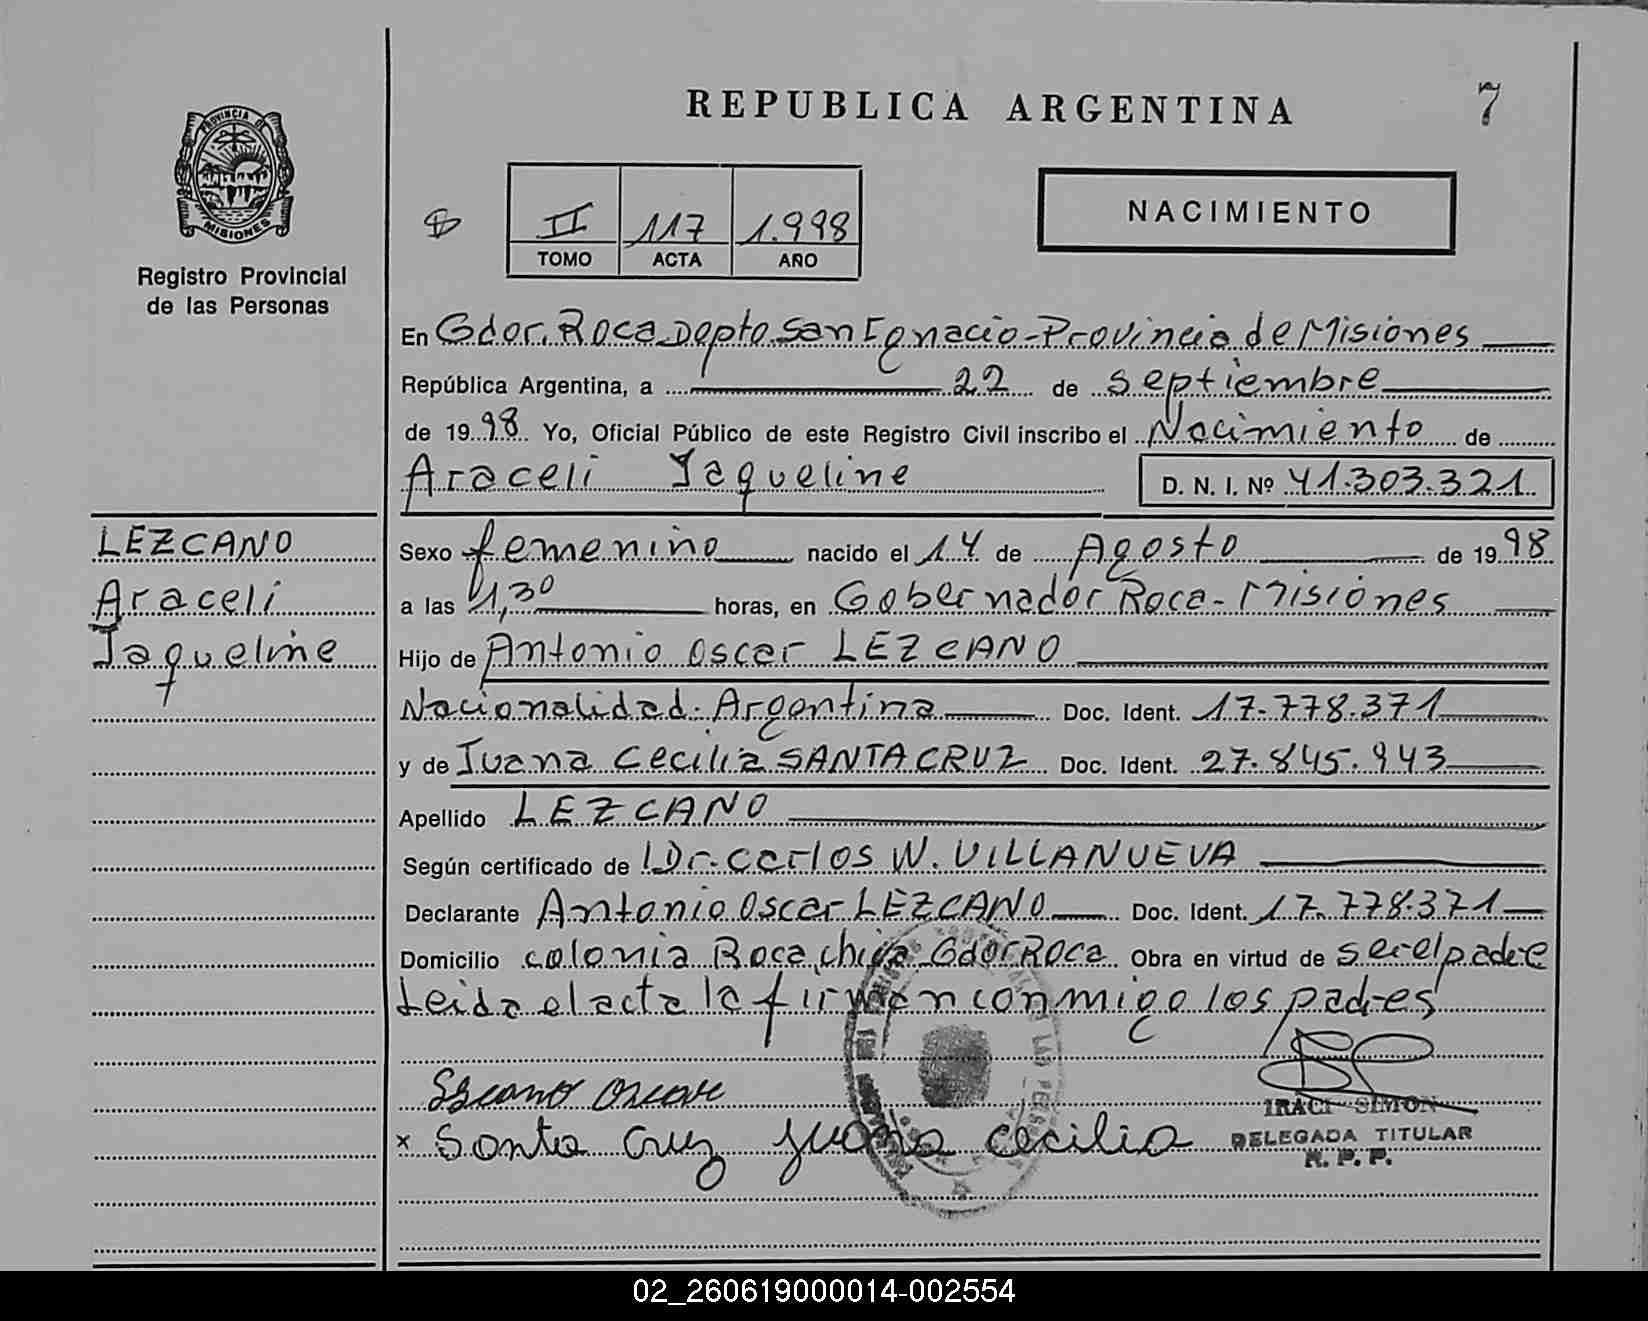 REPUBLICA ARGENTINA
7
PROVINCIA DE
MISIONES
Registro Provincial
de las Personas
II 117 1.998
TOMO ACTA AÑO
NACIMIENTO
En Gdor. Roca Depto. San Ignacio - Provincia de Misiones
República Argentina, a 22 de septiembre
de 1998 Yo, Oficial Público de este Registro Civil inscribo el Nacimiento de
Araceli Jaqueline D. N. I. Nº 41.303.321
LEZCANO
Araceli
Jaqueline
Sexo femenino nacido el 14 de Agosto de 1998
a las 4,30 horas, en Gobernador Roca - Misiones
Hijo de Antonio Oscar LEZCANO
Nacionalidad: Argentina Doc. Ident. 17.778.371
y de Juana Cecilia SANTACRUZ Doc. Ident. 27.845.943
Apellido LEZCANO
Según certificado de Dr. Carlos W. VILLANUEVA
Declarante Antonio Oscar LEZCANO Doc. Ident. 17.778.371
Domicilio colonia Roca chica Gdor Roca Obra en virtud de ser el padre
Leida el acta la firman conmigo los padres
x Santa Cruz Juana Cecilia
IRACI SIMON
DELEGADA TITULAR
R. P. P.
02_260619000014-002554